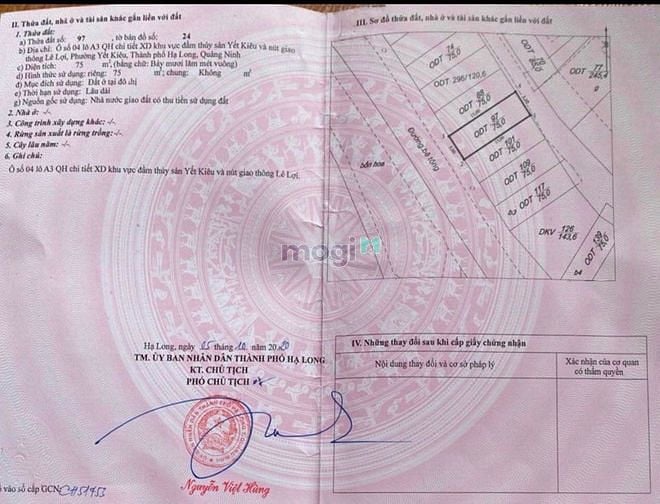 II. Thửa đất, nhà ở và tài sản khác gắn liền với đất
1. Thửa đất:
a) Thửa đất số: 97 , tờ bản đồ số: 24
b) Địa chỉ: Ô số 04 lô A3 QH chi tiết XD khu vực đầm thủy sản Yết Kiêu và nút giao
thông Lê Lợi, Phường Yết Kiêu, Thành phố Hạ Long, Quảng Ninh
c) Diện tích: 75 m², (bằng chữ: Bảy mươi lăm mét vuông)
d) Hình thức sử dụng: riêng: 75 m²; chung: Không m²
đ) Mục đích sử dụng: Đất ở tại đô thị
e) Thời hạn sử dụng: Lâu dài
g) Nguồn gốc sử dụng: Nhà nước giao đất có thu tiền sử dụng đất
2. Nhà ở: -/-
3. Công trình xây dựng khác: -/-
4. Rừng sản xuất là rừng trồng: -/-
5. Cây lâu năm: -/-
6. Ghi chú:
Ô số 04 lô A3 QH chi tiết XD khu vực đầm thủy sản Yết Kiêu và nút giao thông Lê Lợi.
Hạ Long, ngày 05 tháng 10 năm 2020
TM. ỦY BAN NHÂN DÂN THÀNH PHỐ HẠ LONG
KT. CHỦ TỊCH
PHÓ CHỦ TỊCH
Nguyễn Việt Hùng
vào sổ cấp GCN: CH51953
III. Sơ đồ thửa đất, nhà ở và tài sản khác gắn liền với đất
ODT 74 75,0
ODT 296/120,6
ODT 88 75,0
ODT 97 75,0
ODT 101 75,0
ODT 109 75,0
ODT 117 75,0
DKV 126 143,6
ODT 139 75,0
ODT
77 245,4
Đường bê tông
bồn hoa
b3
b4
mogi
IV. Những thay đổi sau khi cấp giấy chứng nhận
Nội dung thay đổi và cơ sở pháp lý
Xác nhận của cơ quan
có thẩm quyền